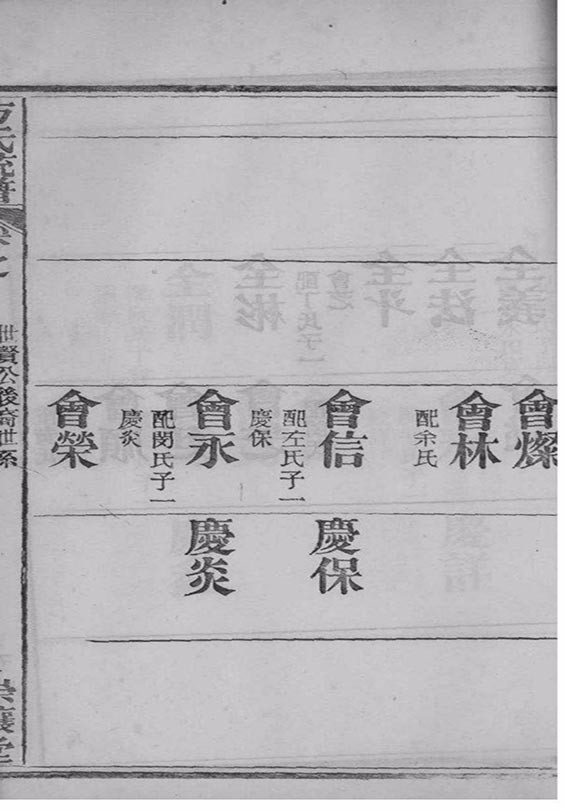 會燦
會林
配余氏
會信
配左氏子一
慶保
會永
配閔氏子一
慶炎
會榮
慶保
慶炎
世賢公後裔世系